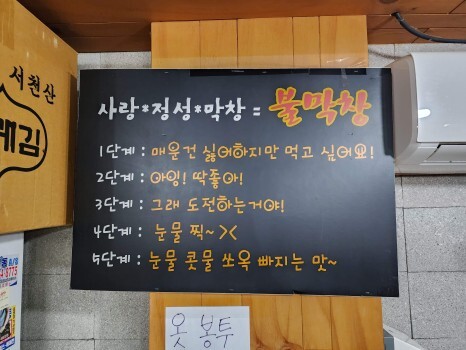 서천산
래김
사랑*정성*막창 = 불막창
1단계 : 매운건 싫어하지만 먹고 싶어요!
2단계 : 아잉! 딱좋아!
3단계 : 그래 도전하는거야!
4단계 : 눈물 찍~ ><
5단계 : 눈물 콧물 쏘옥 빠지는 맛~
옷 봉투